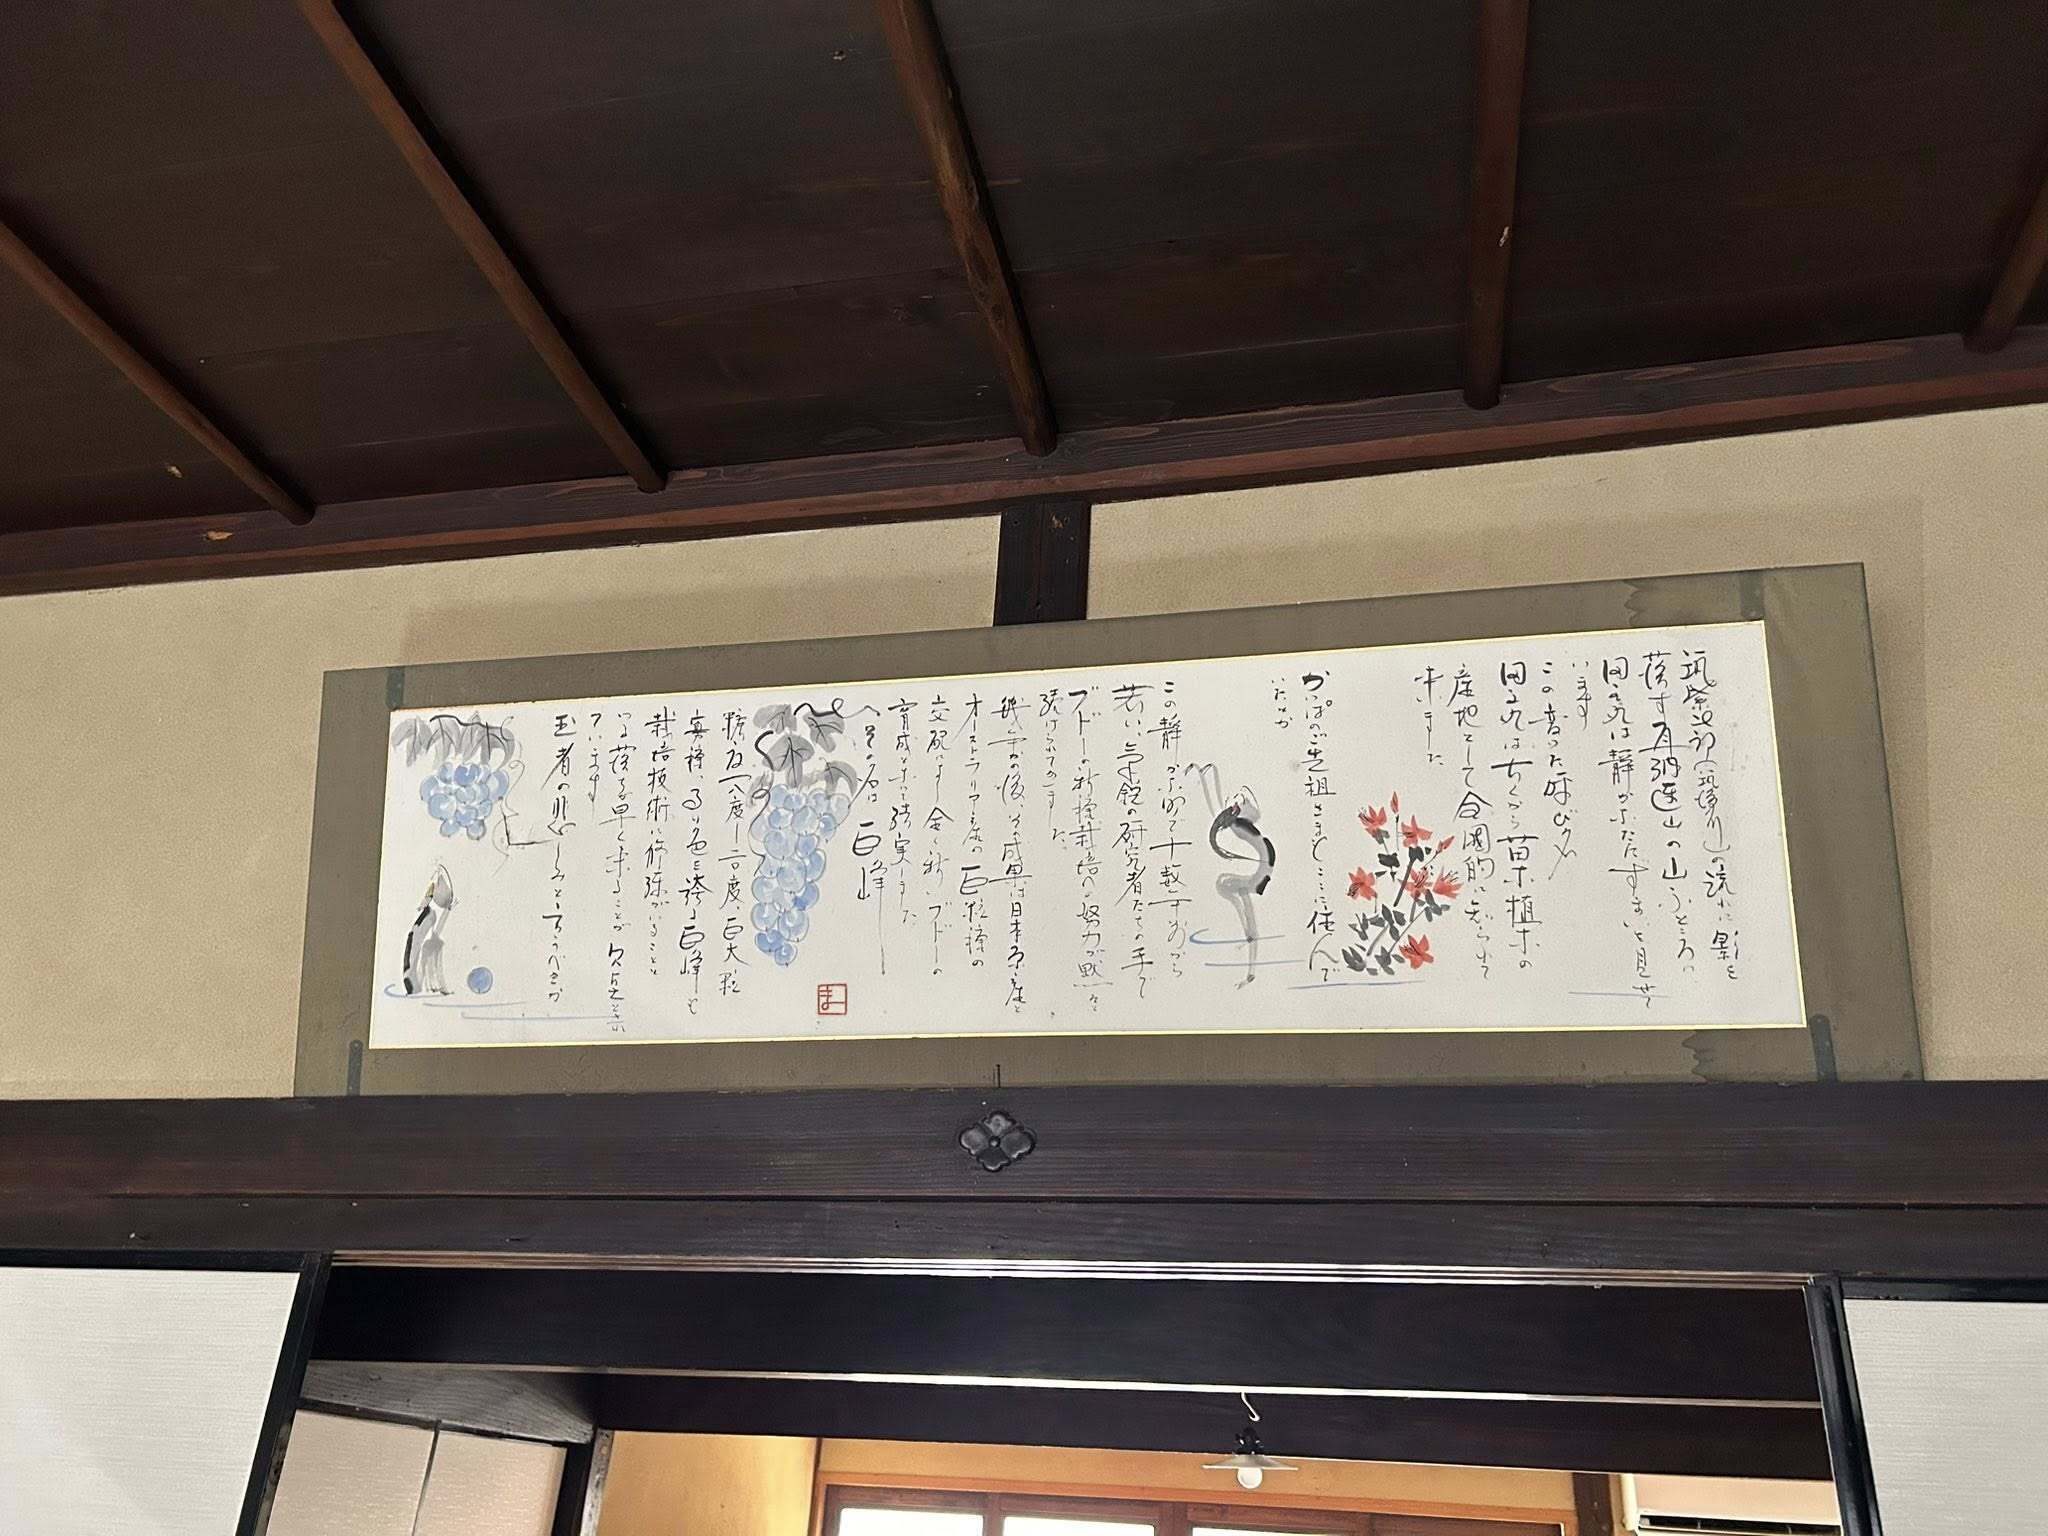 筑紫次郎(筑後川)の流れに影を
落す耳納連山の山ふところに
田主丸は静かなたたずまいを見せて
います
この音った呼び名
田主丸は古くから苗木植木の
産地として全国的に知られて
来ました
かっぱのご先祖さまもここに住んで
いたとか
この静かな町で十数年前から
若い気鋭の研究者たちの手で
ブドーの新種栽培への努力が黙々と
続けられてゐました
幾年かの後、その成果は日本原産と
オーストラリア産の巨粒種の
交配による全く新しいブドーの
育成となって結実しました
その名は 巨峰
糖度十八度〜二十度、巨大粒
実種、高い色を誇る巨峰も
栽培技術に修練がいることと
いる落る早く来ることが欠点と示
ています
王者の悲しみと云うべきか
ま